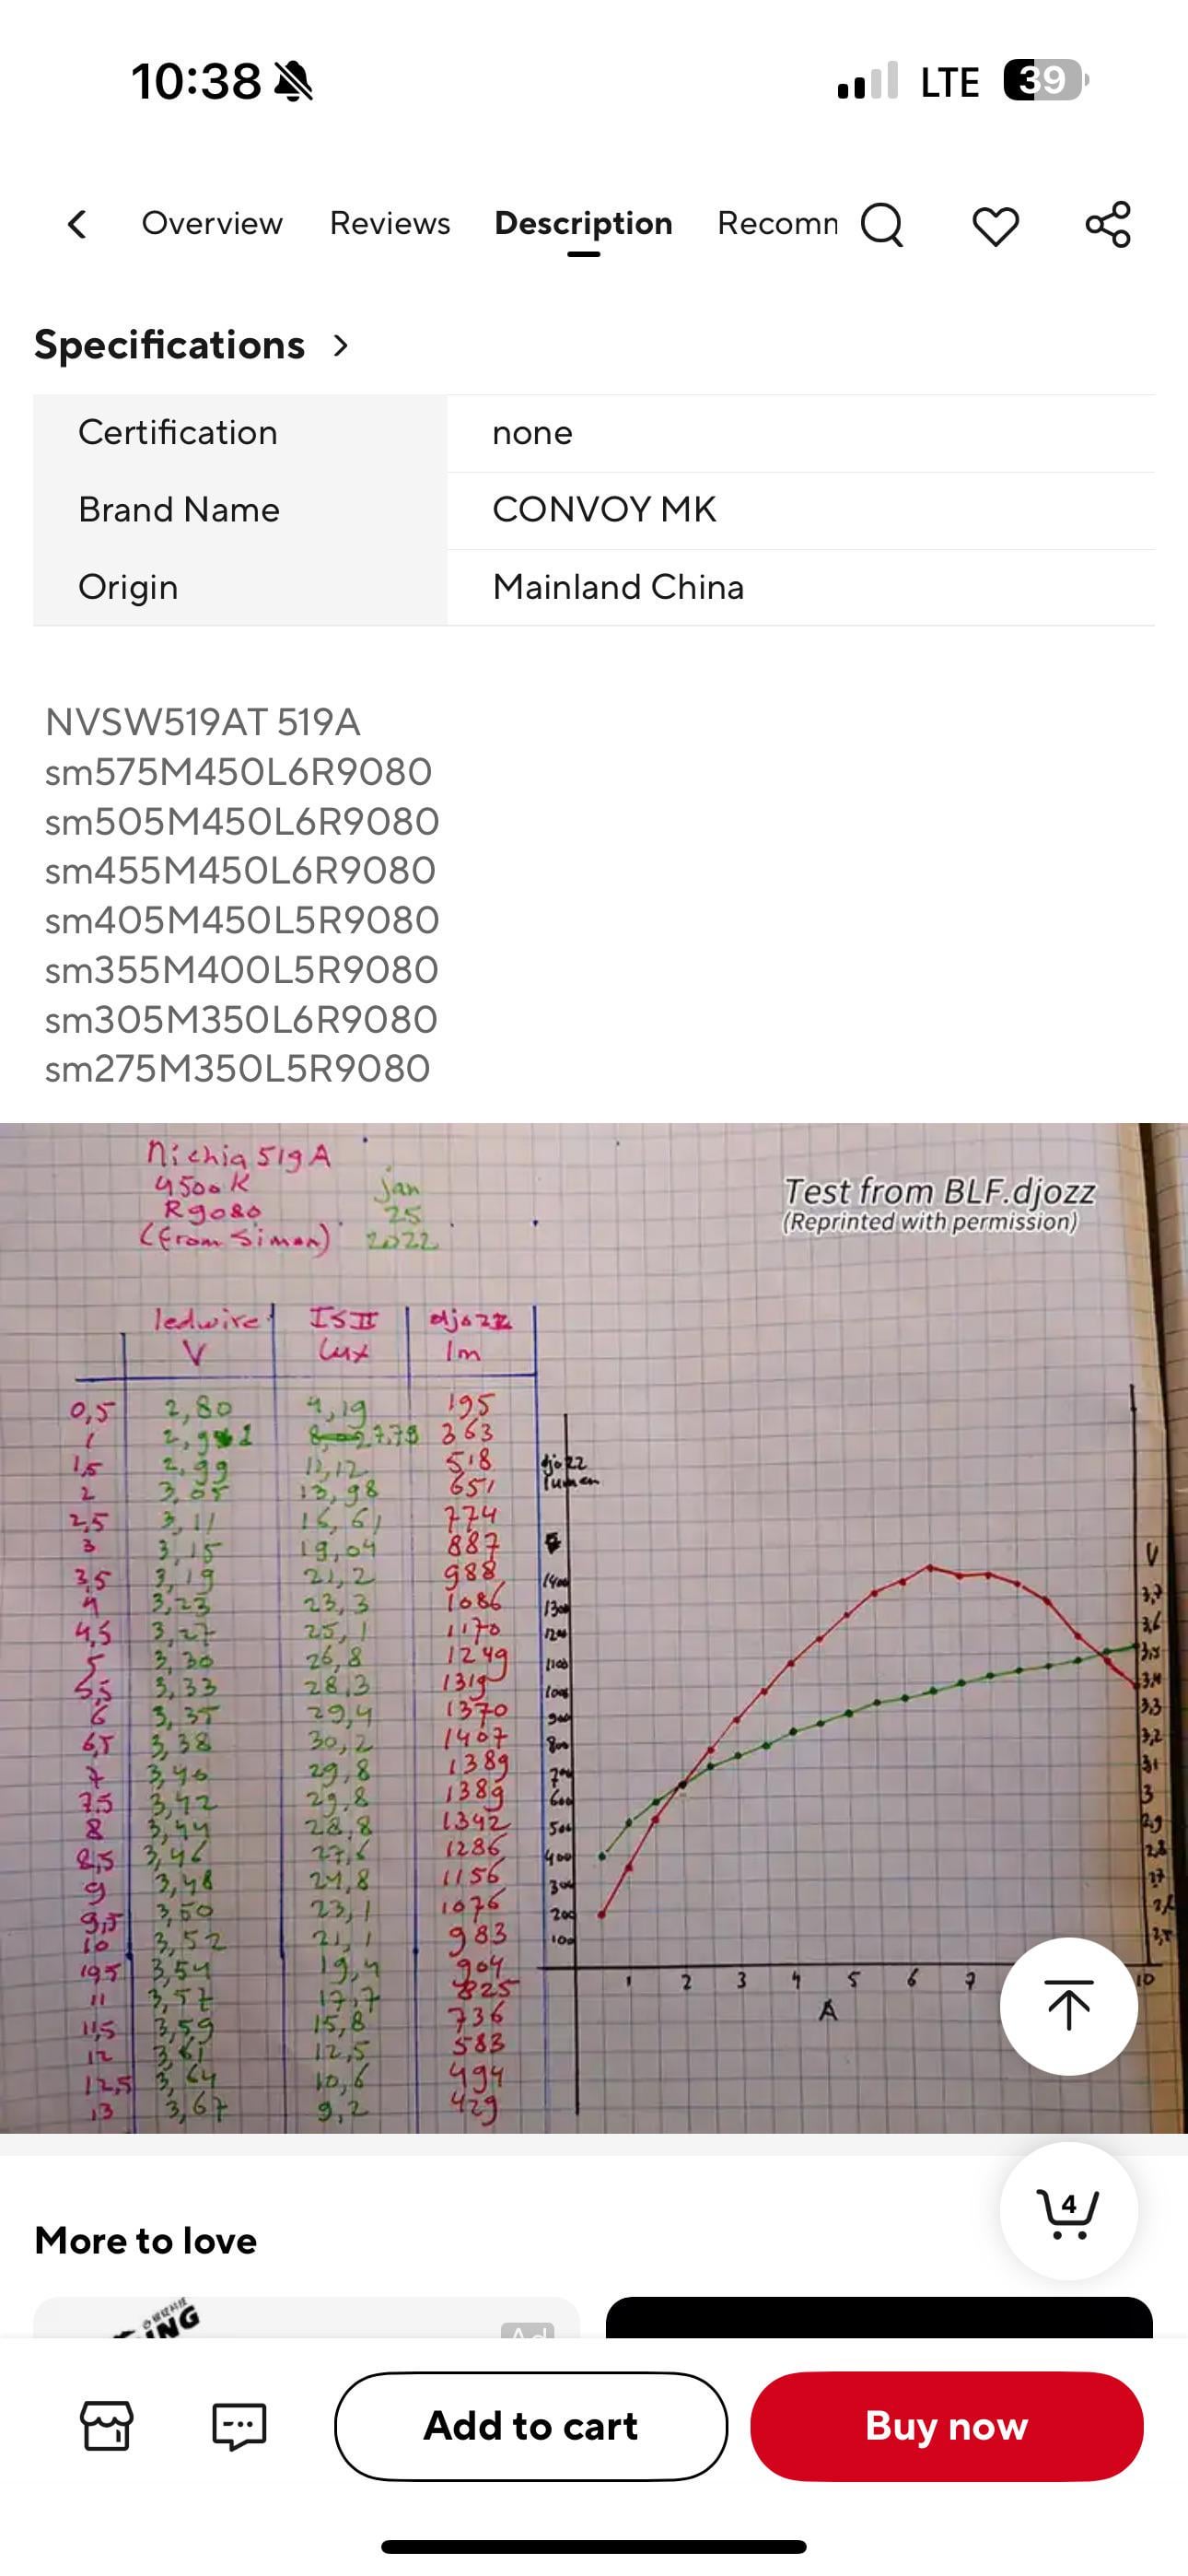 10:38
LTE 39
Overview Reviews Description Recomn
Specifications
Certification none
Brand Name CONVOY MK
Origin Mainland China
NVSW519AT 519A
sm575M450L6R9080
sm505M450L6R9080
sm455M450L6R9080
sm405M450L5R9080
sm355M400L5R9080
sm305M350L6R9080
sm275M350L5R9080
Nichia 519A
4500K
R9080
(from Simon)
jan
25
2022
Test from BLF.djozz
(Reprinted with permission)
ledwire IS II djozz
V lux lm
0,5 2,80 4,19 195
1 7,78 363
1,5 2,99 11,12 518
2 3,05 13,98 651
2,5 3,11 16,61 774
3 3,15 19,04 887
3,5 3,19 21,2 988
4 3,23 23,3 1086
4,5 3,27 25,1 1170
5 3,30 26,8 1249
5,5 3,33 28,3 1319
6 3,35 29,4 1370
6,5 3,38 30,2 1407
7 3,40 29,8 1389
7,5 3,42 29,8 1389
8 3,44 28,8 1342
8,5 3,46 27,6 1286
9 3,48 24,8 1156
9,5 3,50 23,1 1076
10 3,52 21,1 983
10,5 3,54 19,4 904
11 3,57 17,7 825
11,5 3,59 15,8 736
12 3,61 12,5 583
12,5 3,64 10,6 494
13 3,67 9,2 429
djozz
lumen
1400
1300
1200
1100
1000
900
800
700
600
500
400
300
200
100
V
3,7
3,6
3,5
3,4
3,3
3,2
3,1
3
2,9
2,8
2,7
2,6
2,5
1 2 3 4 5 6 7 10
A
4
More to love
Ad
Add to cart
Buy now